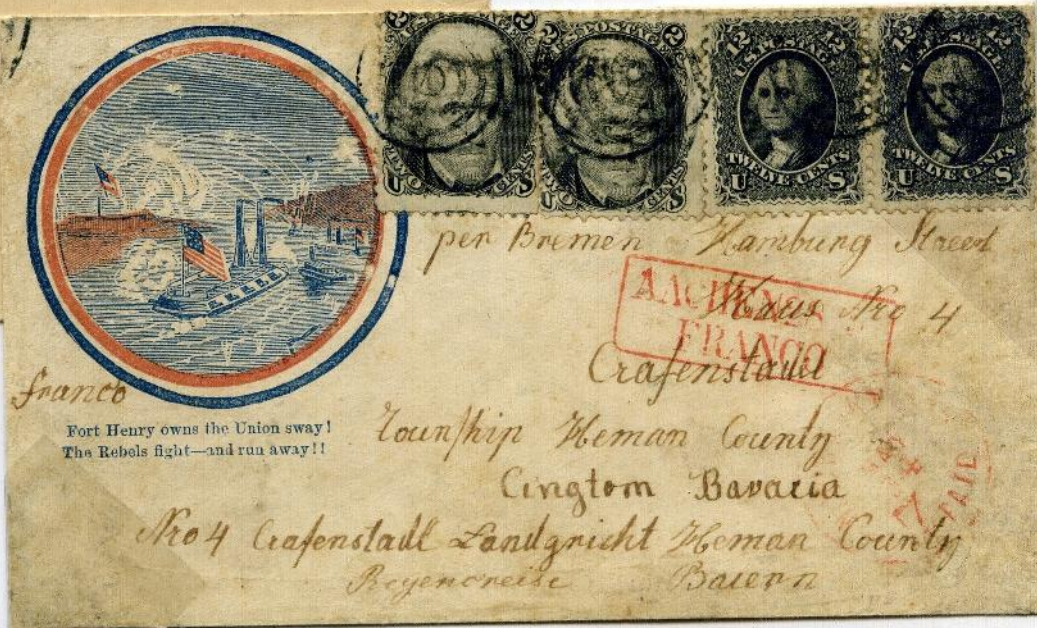 2 2
TWO CENTS
U S
2 POSTAGE 2
TWO CENTS
U S
12 12
U.S. POSTAGE
TWELVE CENTS
U S
12 12
U.S. POSTAGE
TWELVE CENTS
U S
per Bremen Hamburg Street
Haus Nro 4
AACHEN
FRANCO
Crafenstadl
franco
Fort Henry owns the Union sway!
The Rebels fight—and run away!!
Township Heman County
Cingtom Bavaria
PAID
Nro 4 Crafenstadl Landgricht Heman County
Regencreise Baiern